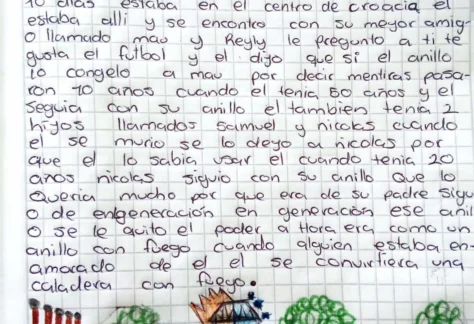 10 dias estaba en el centro de croacia el
estaba alli y se encontro con su meyor amig-
o llamado mau y Reyly le pregunto a ti te
gusta el futbol y el digo que si el anillo
lo congelo a mau por decir mentiras pasa-
ron 10 años cuando el tenia 50 años y el
seguia con su anillo el tambien tenia 2
hijos llamados Samuel y nicolas cuando
el se murio se lo deyo a nicolas por
que el lo sabia usar el cuando tenia 20
años nicolas siguio con su anillo que lo
queria mucho por que era de su padre sigu
o de engeneración en generación ese anil
o se le quito el poder a Hora era como un
anillo con fuego cuando alguien estaba en-
amorado de el el se convirtiera una
caladera con fuego.